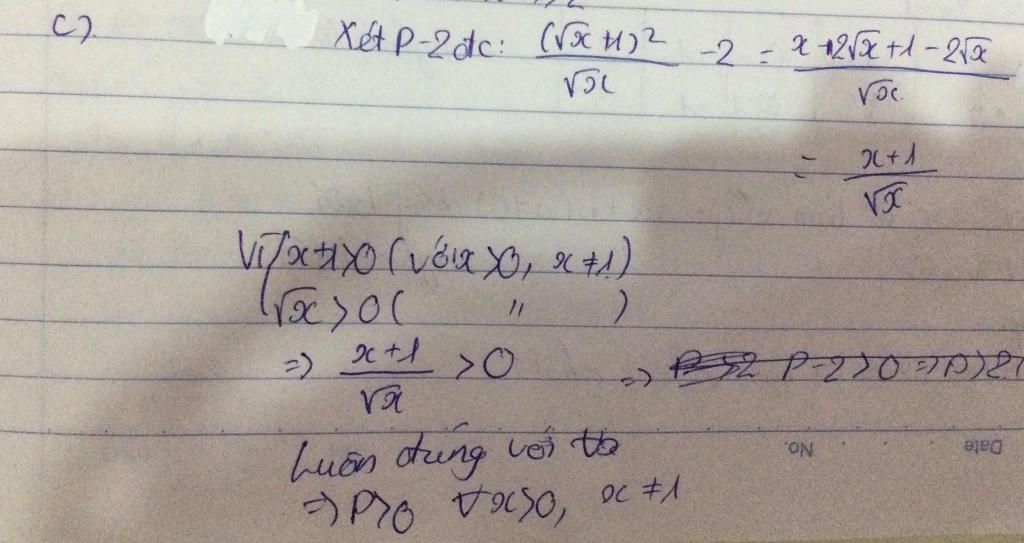 c) Xét P-2 đc: (√x+1)²/√x - 2 = (x+2√x+1-2√x)/√x
= (x+1)/√x
Vì x+1>0 (với x>0, x≠1)
√x>0 ( " )
=> (x+1)/√x >0 => P-2>0 => P>2
Luôn đúng với
=> P>0 ∀x>0, x≠1
No.
Date